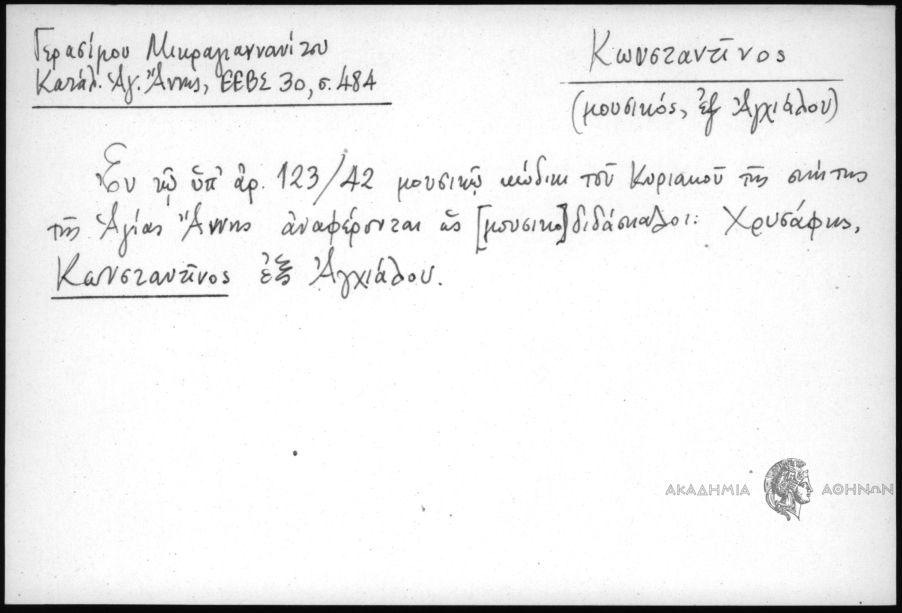 Γερασίμου Μικραγιαννανίτου
Κατάλ. Ἁγ. Ἄννης, ΕΕΒΣ 30, σ. 484
Κωνσταντῖνος
(μουσικός, ἐξ Ἀγχιάλου)
Ἐν τῷ ὑπ' ἀρ. 123/42 μουσικῷ κώδικι τοῦ Κυριακοῦ τῆς σκήτης
τῆς Ἁγίας Ἄννης ἀναφέρονται ὡς [μουσικο]διδάσκαλοι: Χρυσάφης,
Κωνσταντῖνος ἐξ Ἀγχιάλου.
ΑΚΑΔΗΜΙΑ ΑΘΗΝΩΝ